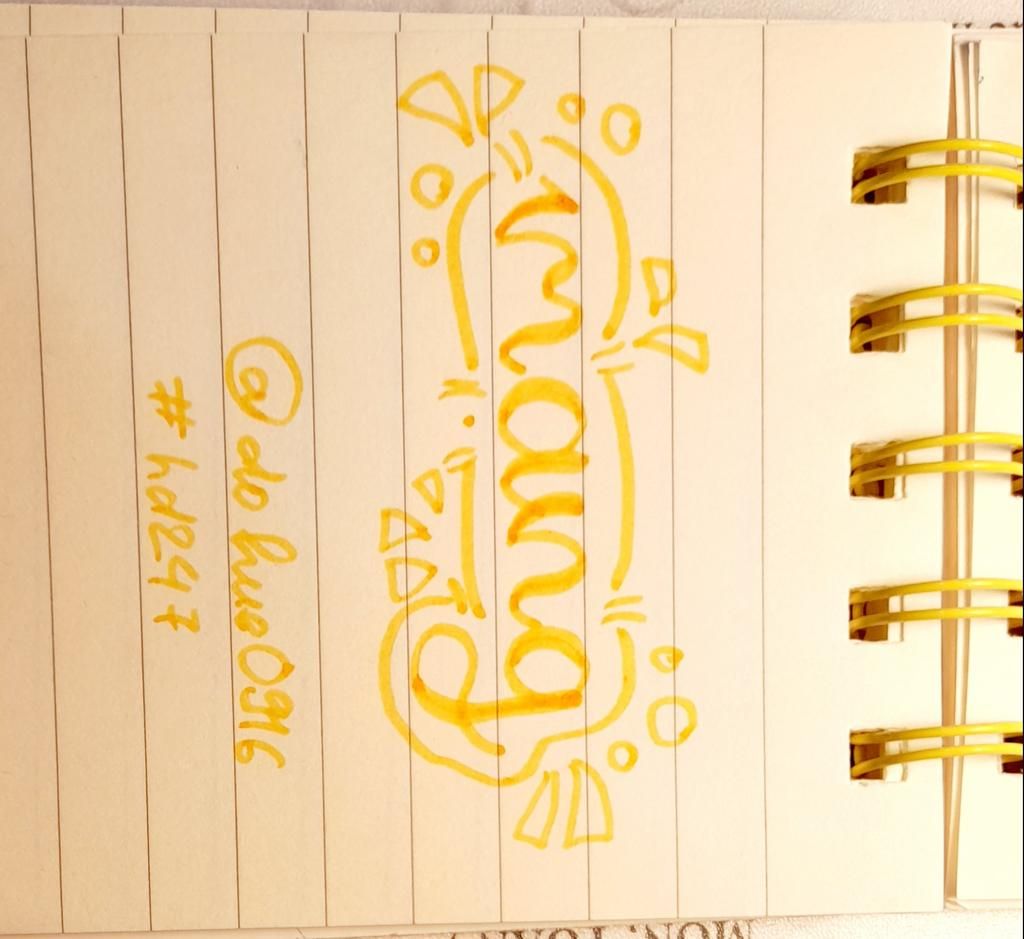 mang
@dohuo0916
#hd247